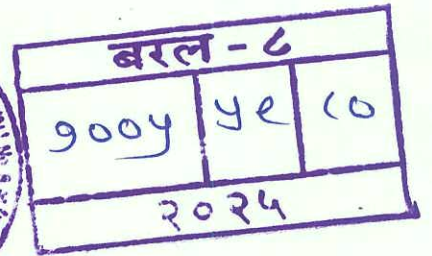 बरल - ८
१००५ ५९ ८०
२०२५